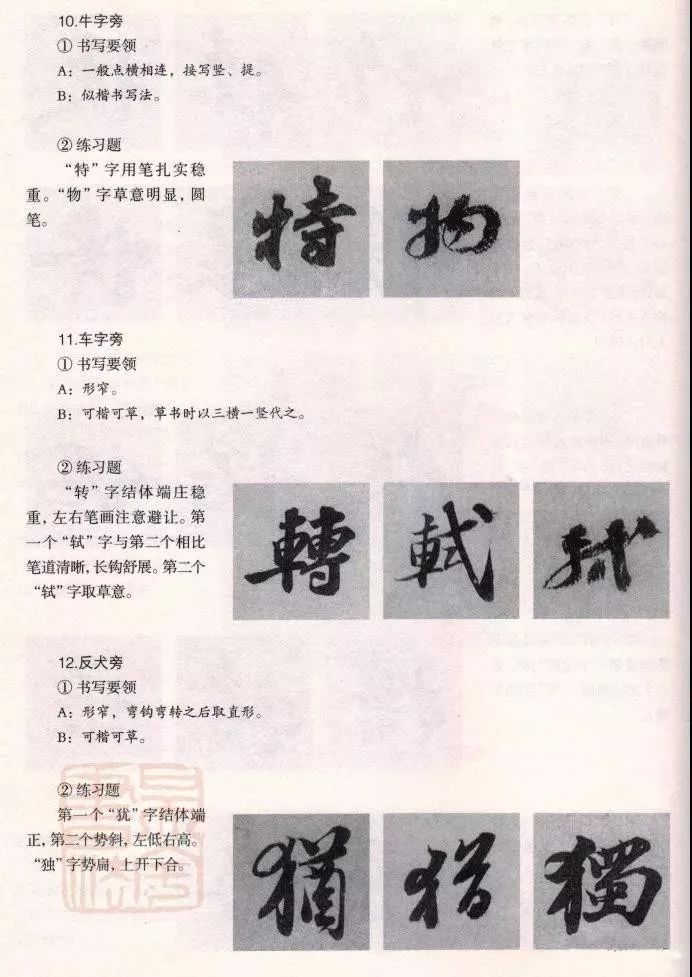 10.牛字旁
① 书写要领
A：一般点横相连，接写竖、提。
B：似楷书写法。
② 练习题
“特”字用笔扎实稳
重。“物”字草意明显，圆
笔。
特 物
11.车字旁
① 书写要领
A：形窄。
B：可楷可草，草书时以三横一竖代之。
② 练习题
“转”字结体端庄稳
重，左右笔画注意避让。第
一个“轼”字与第二个相比
笔道清晰，长钩舒展。第二个
“轼”字取草意。
轉 軾 軾
12.反犬旁
① 书写要领
A：形窄，弯钩弯转之后取直形。
B：可楷可草。
② 练习题
第一个“犹”字结体端
正，第二个势斜，左低右高。
“独”字势扁，上开下合。
猶 猶 獨